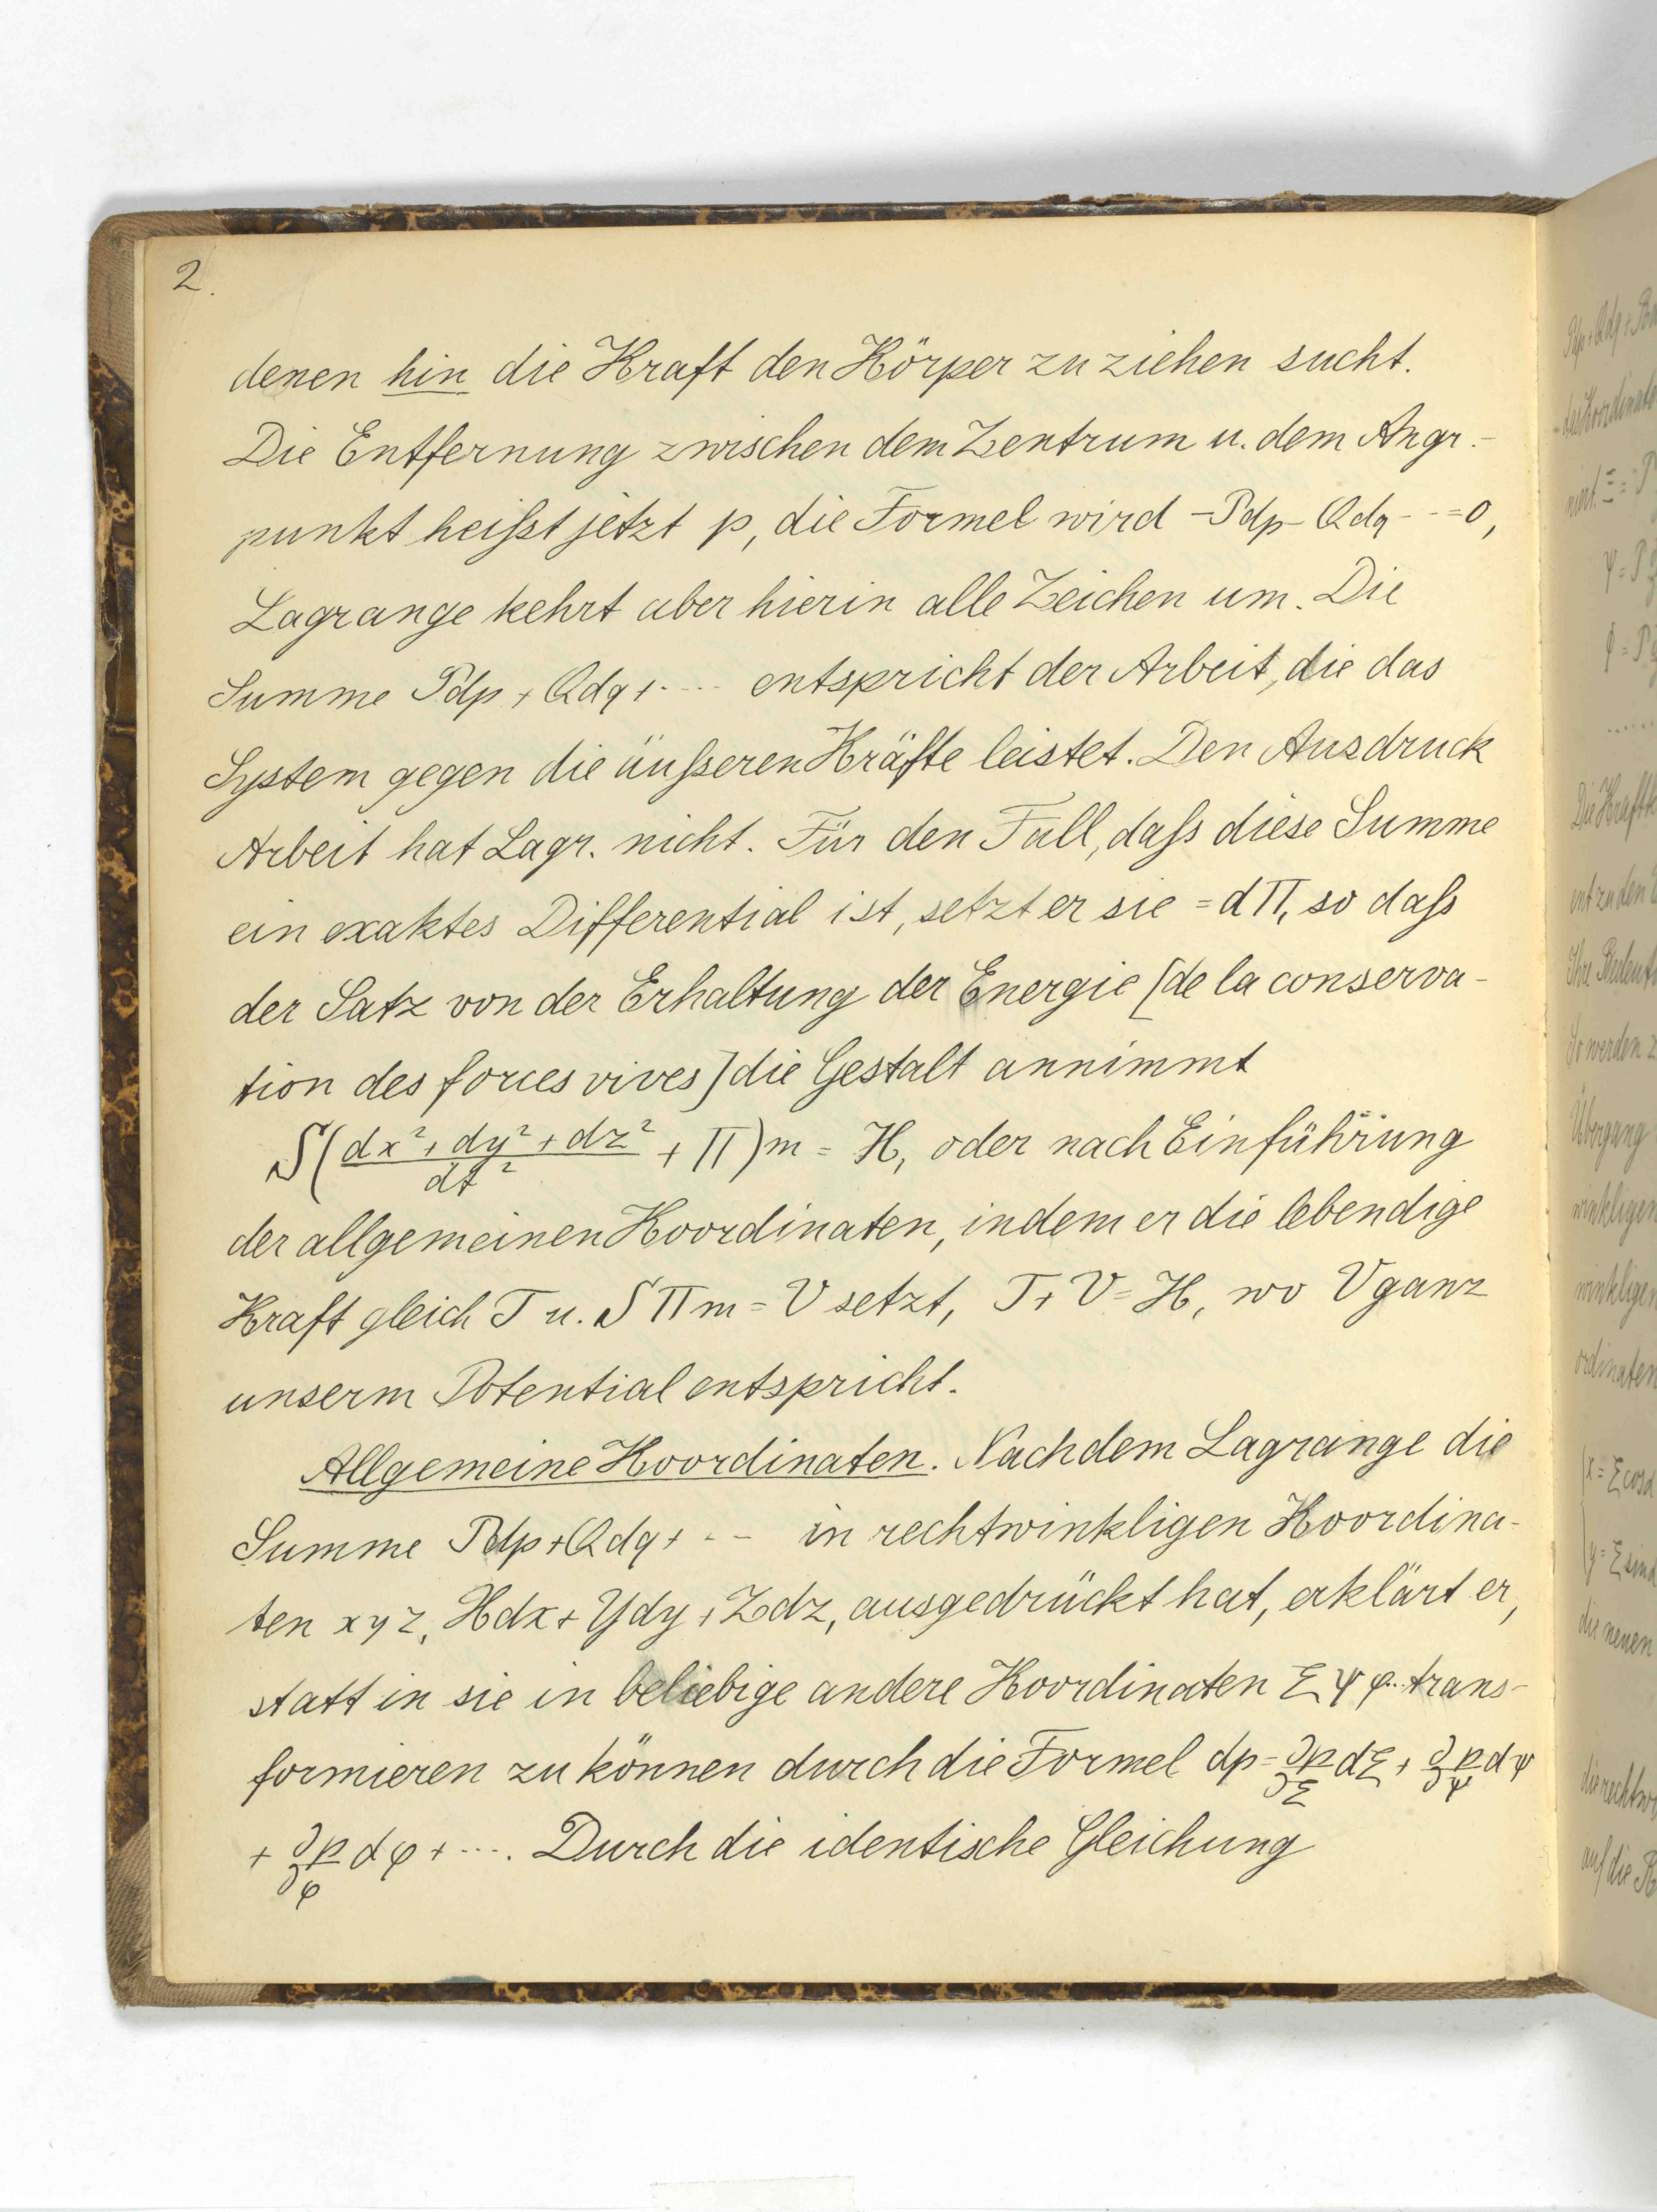 2.
denen hin die Kraft den Körper zu ziehen sucht.
Die Entfernung zwischen dem Zentrum u. dem Angr.-
punkt heißt jetzt p, die Formel wird -Pdp-Qdq---=0,
Lagrange kehrt aber hierin alle Zeichen um. Die
Summe Pdp+Qdq+.... entspricht der Arbeit, die das
System gegen die äußeren Kräfte leistet. Den Ausdruck
Arbeit hat Lagr. nicht. Für den Fall, daß diese Summe
ein exaktes Differential ist, setzt er sie =dΠ, so daß
der Satz von der Erhaltung der Energie [de la conserva-
tion des forces vives] die Gestalt annimmt
S(dx²+dy²+dz²/dt² + Π)m = H, oder nach Einführung
der allgemeinen Koordinaten, indem er die lebendige
Kraft gleich T u. SΠm=V setzt, T+V=H, wo V ganz
unserm Potential entspricht.
Allgemeine Koordinaten. Nachdem Lagrange die
Summe Pdp+Qdq+--- in rechtwinkligen Koordina-
ten xyz, Xdx+Ydy+Zdz, ausgedrückt hat, erklärt er,
statt in sie in beliebige andere Koordinaten ξ ψ φ... trans-
formieren zu können durch die Formel dp=∂p/∂ξ dξ+∂p/∂ψ dψ
+∂p/∂φ dφ+.... Durch die identische Gleichung
Pdp+Qdq+
Die Kraftk
So werden
Übergang
winkligen
winkligen
ordinaten
die neuen
auf die